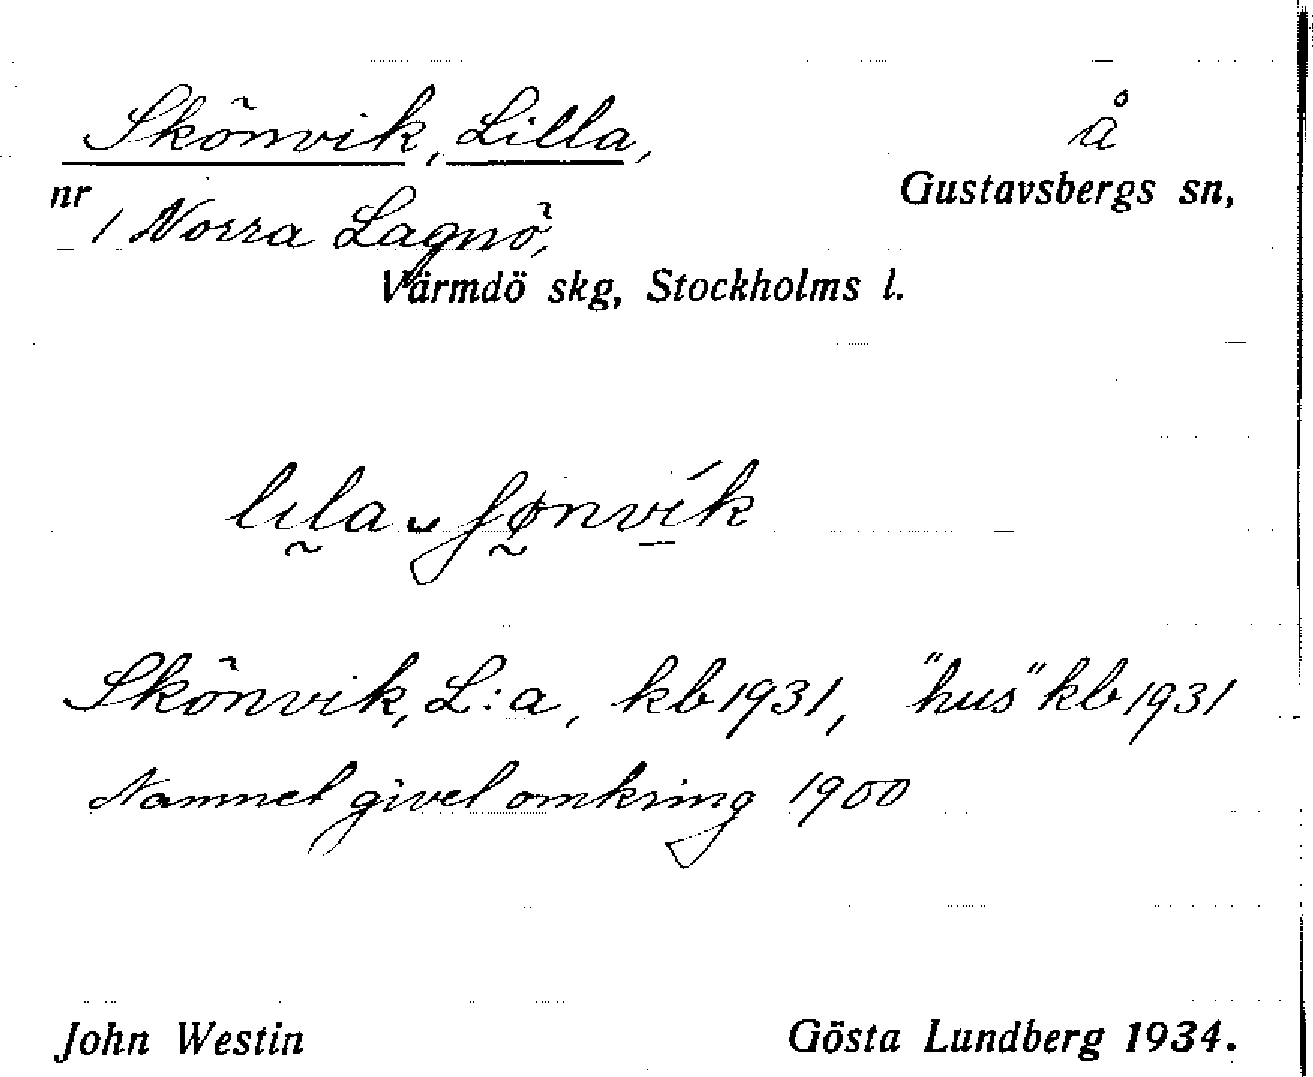 Skönvik, Lilla, å
nr Gustavsbergs sn,
1 Norra Lagnö,
Värmdö skg, Stockholms l.
lıla ʃɵnvík
Skönvik, L:a, kb 1931, "hus" kb 1931
Namnet givet omkring 1900
John Westin Gösta Lundberg 1934.